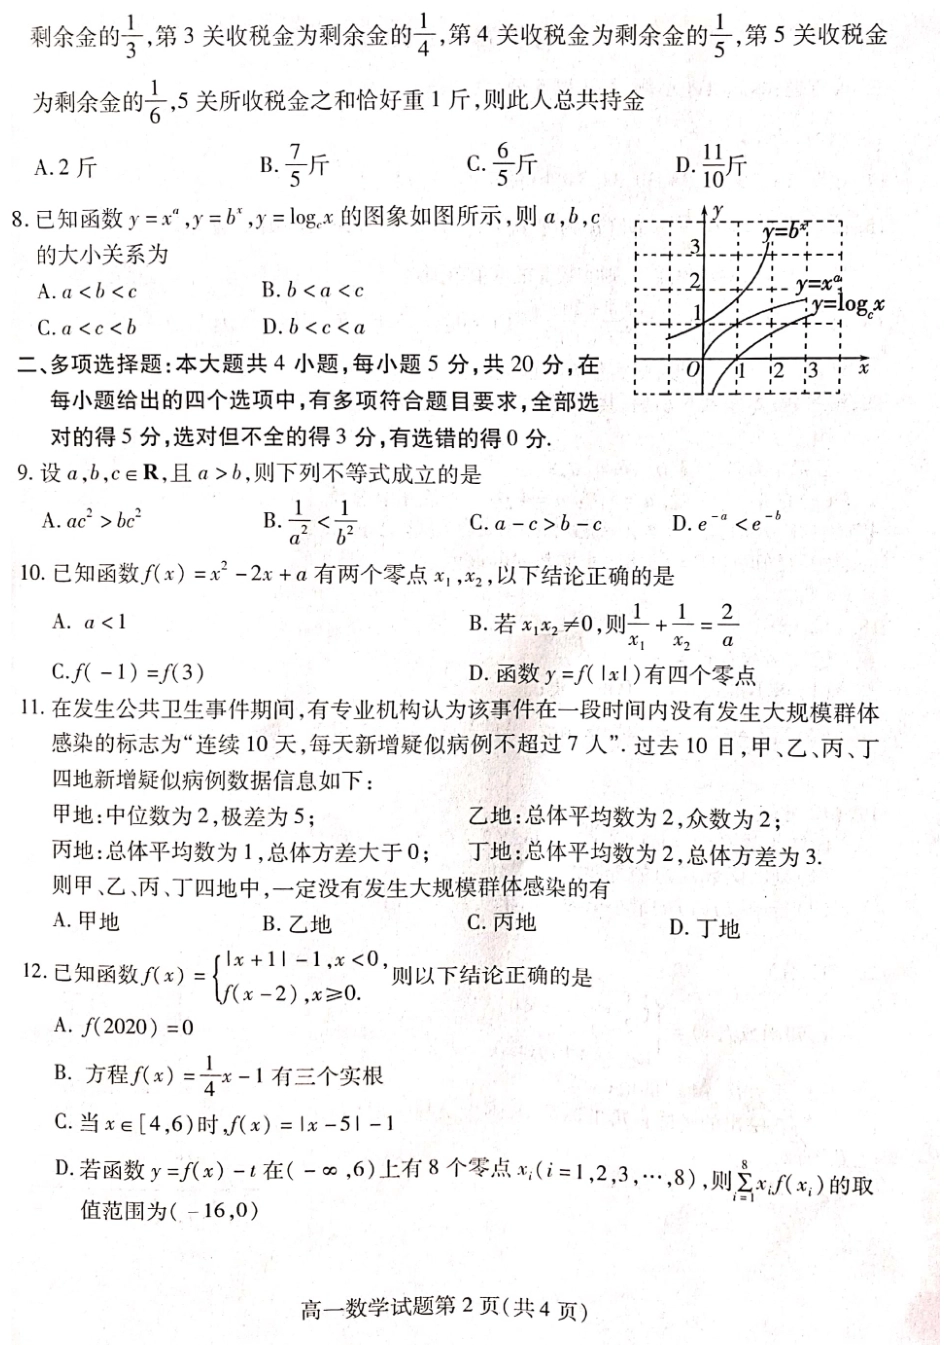 剩余金的1/3,第3关收税金为剩余金的1/4,第4关收税金为剩余金的1/5,第5关收税金
为剩余金的1/6,5关所收税金之和恰好重1斤,则此人总共持金
A.2斤 B.7/5斤 C.6/5斤 D.11/10斤
8.已知函数y=x^a,y=b^x,y=log_c x的图象如图所示,则a,b,c
的大小关系为
A.a<b<c B.b<a<c
C.a<c<b D.b<c<a
y
y=b^x
3
2
y=x^a
1
y=log_c x
O 1 2 3 x
二、多项选择题:本大题共4小题,每小题5分,共20分,在
每小题给出的四个选项中,有多项符合题目要求,全部选
对的得5分,选对但不全的得3分,有选错的得0分.
9.设a,b,c∈R,且a>b,则下列不等式成立的是
A.ac²>bc² B.1/a²<1/b² C.a-c>b-c D.e^{-a}<e^{-b}
10.已知函数f(x)=x²-2x+a有两个零点x₁,x₂,以下结论正确的是
A. a<1 B.若x₁x₂≠0,则1/x₁+1/x₂=2/a
C.f(-1)=f(3) D.函数y=f(|x|)有四个零点
11.在发生公共卫生事件期间,有专业机构认为该事件在一段时间内没有发生大规模群体
感染的标志为“连续10天,每天新增疑似病例不超过7人”.过去10日,甲、乙、丙、丁
四地新增疑似病例数据信息如下:
甲地:中位数为2,极差为5; 乙地:总体平均数为2,众数为2;
丙地:总体平均数为1,总体方差大于0; 丁地:总体平均数为2,总体方差为3.
则甲、乙、丙、丁四地中,一定没有发生大规模群体感染的有
A.甲地 B.乙地 C.丙地 D.丁地
12.已知函数f(x)={|x+1|-1,x<0, f(x-2),x≥0. 则以下结论正确的是
A. f(2020)=0
B. 方程f(x)=1/4x-1有三个实根
C.当x∈[4,6)时,f(x)=|x-5|-1
D.若函数y=f(x)-t在(-∞,6)上有8个零点x_i(i=1,2,3,⋯,8),则∑_{i=1}^{8}x_i f(x_i)的取
值范围为(-16,0)
高一数学试题第2页(共4页)